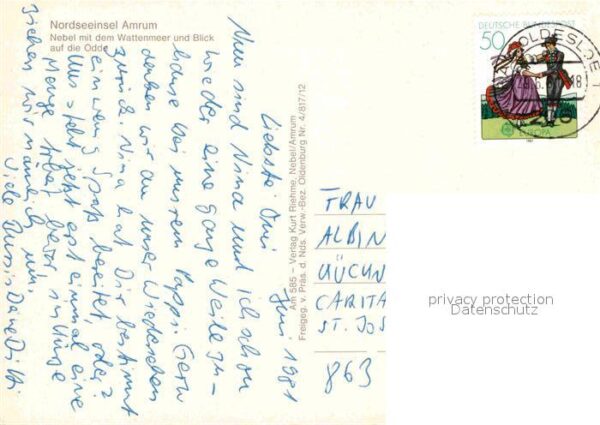 Nordseeinsel Amrum
Nebel mit dem Wattenmeer und Blick
auf die Odde
Juni 1981
Liebste Omi
Nun sind Nina und ich schon
wieder eine ganze Weile zu-
hause bei unserem Pappi. Gern
denken wir an unser Wiedersehen
zurück. Nina hat Dir bestimmt
ein wenig Spaß bereitet, oder?
Uns steht jetzt erst einmal eine
Menge bevor, in Kürze
ziehen wir nämlich um.
Viele Bussis Deine
Am 585 – Verlag Kurt Riehme, Nebel/Amrum
Freigeg. v. Präs. d. Nds. Verw.-Bez. Oldenburg Nr. 4/817/12
DEUTSCHE BUNDESPOST
50
EUROPA
OLDESLOE 1
18
FRAU
ALBIN
CARITA
ST. JOS
863
privacy protection
Datenschutz